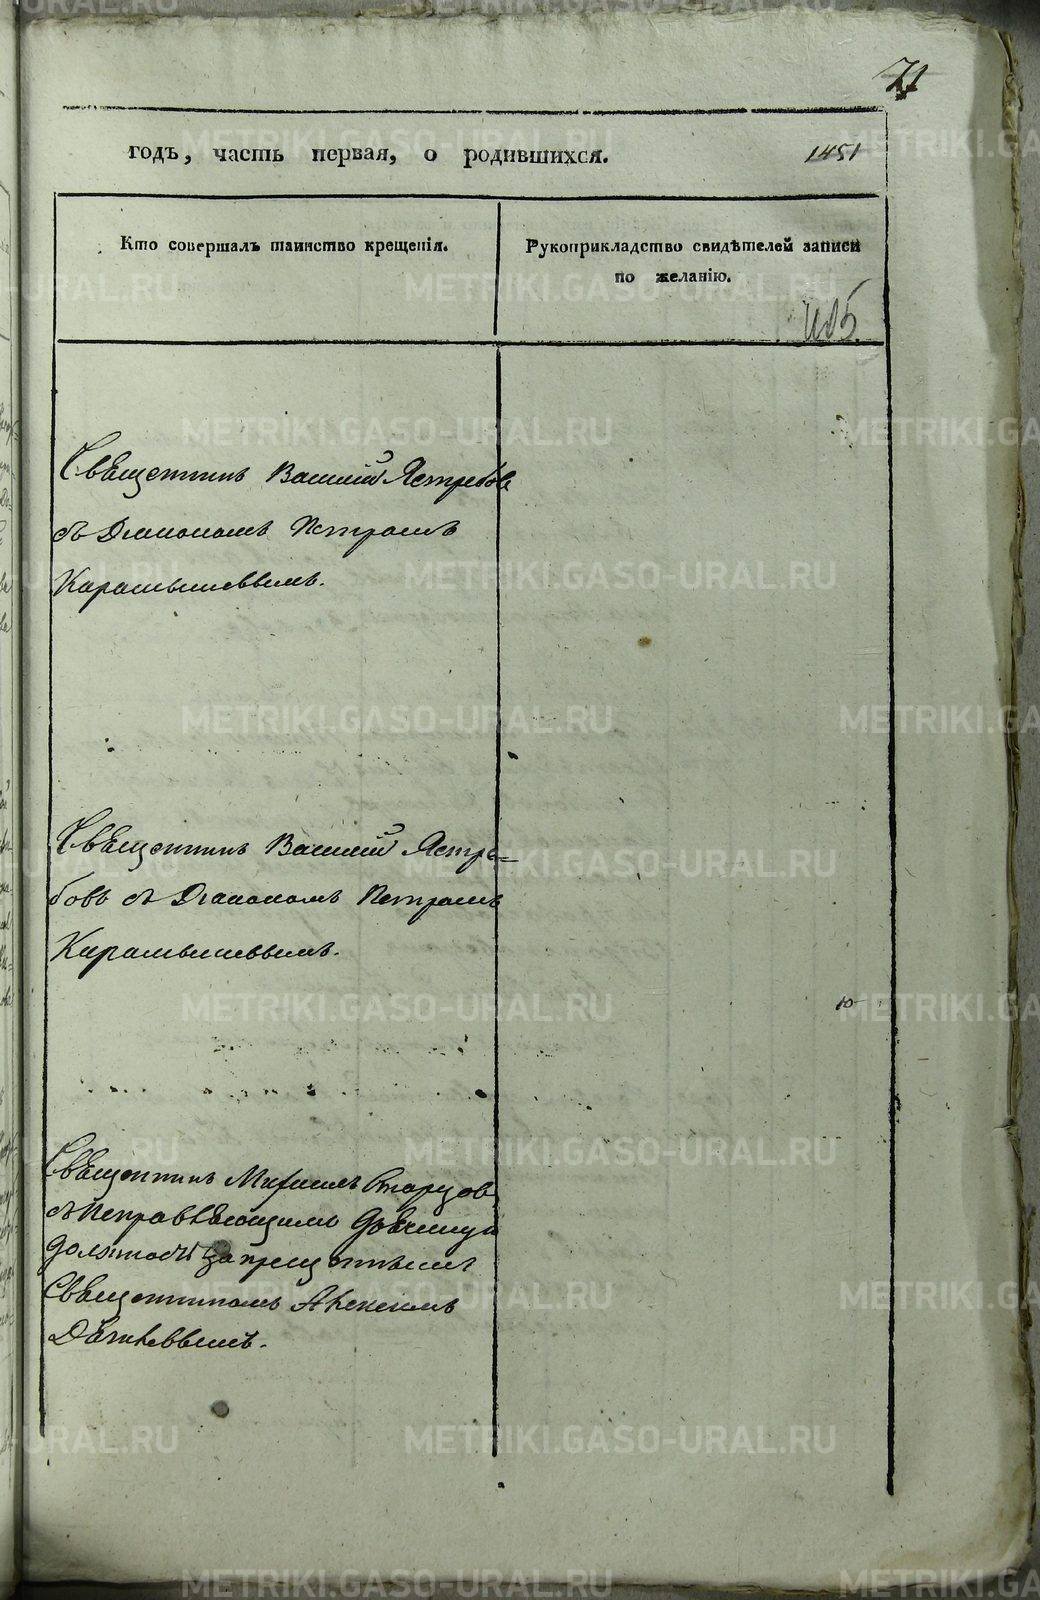 71
годъ, часть первая, о родившихся. 1451
Кто совершалъ таинство крещенія.
Рукоприкладство свидѣтелей записи
по желанію.
Священникъ Василій Ястребовъ
съ Діакономъ Петромъ
Карамышевымъ.
Священникъ Василій Ястре=
бовъ съ Діакономъ Петромъ
Карамышевымъ.
10
Священникъ Михаилъ Старцовъ
съ Исправляющимъ Дьячица
должность запрещеннымъ
Священникомъ Алексіемъ
METRIKI.GASO-URAL.RU